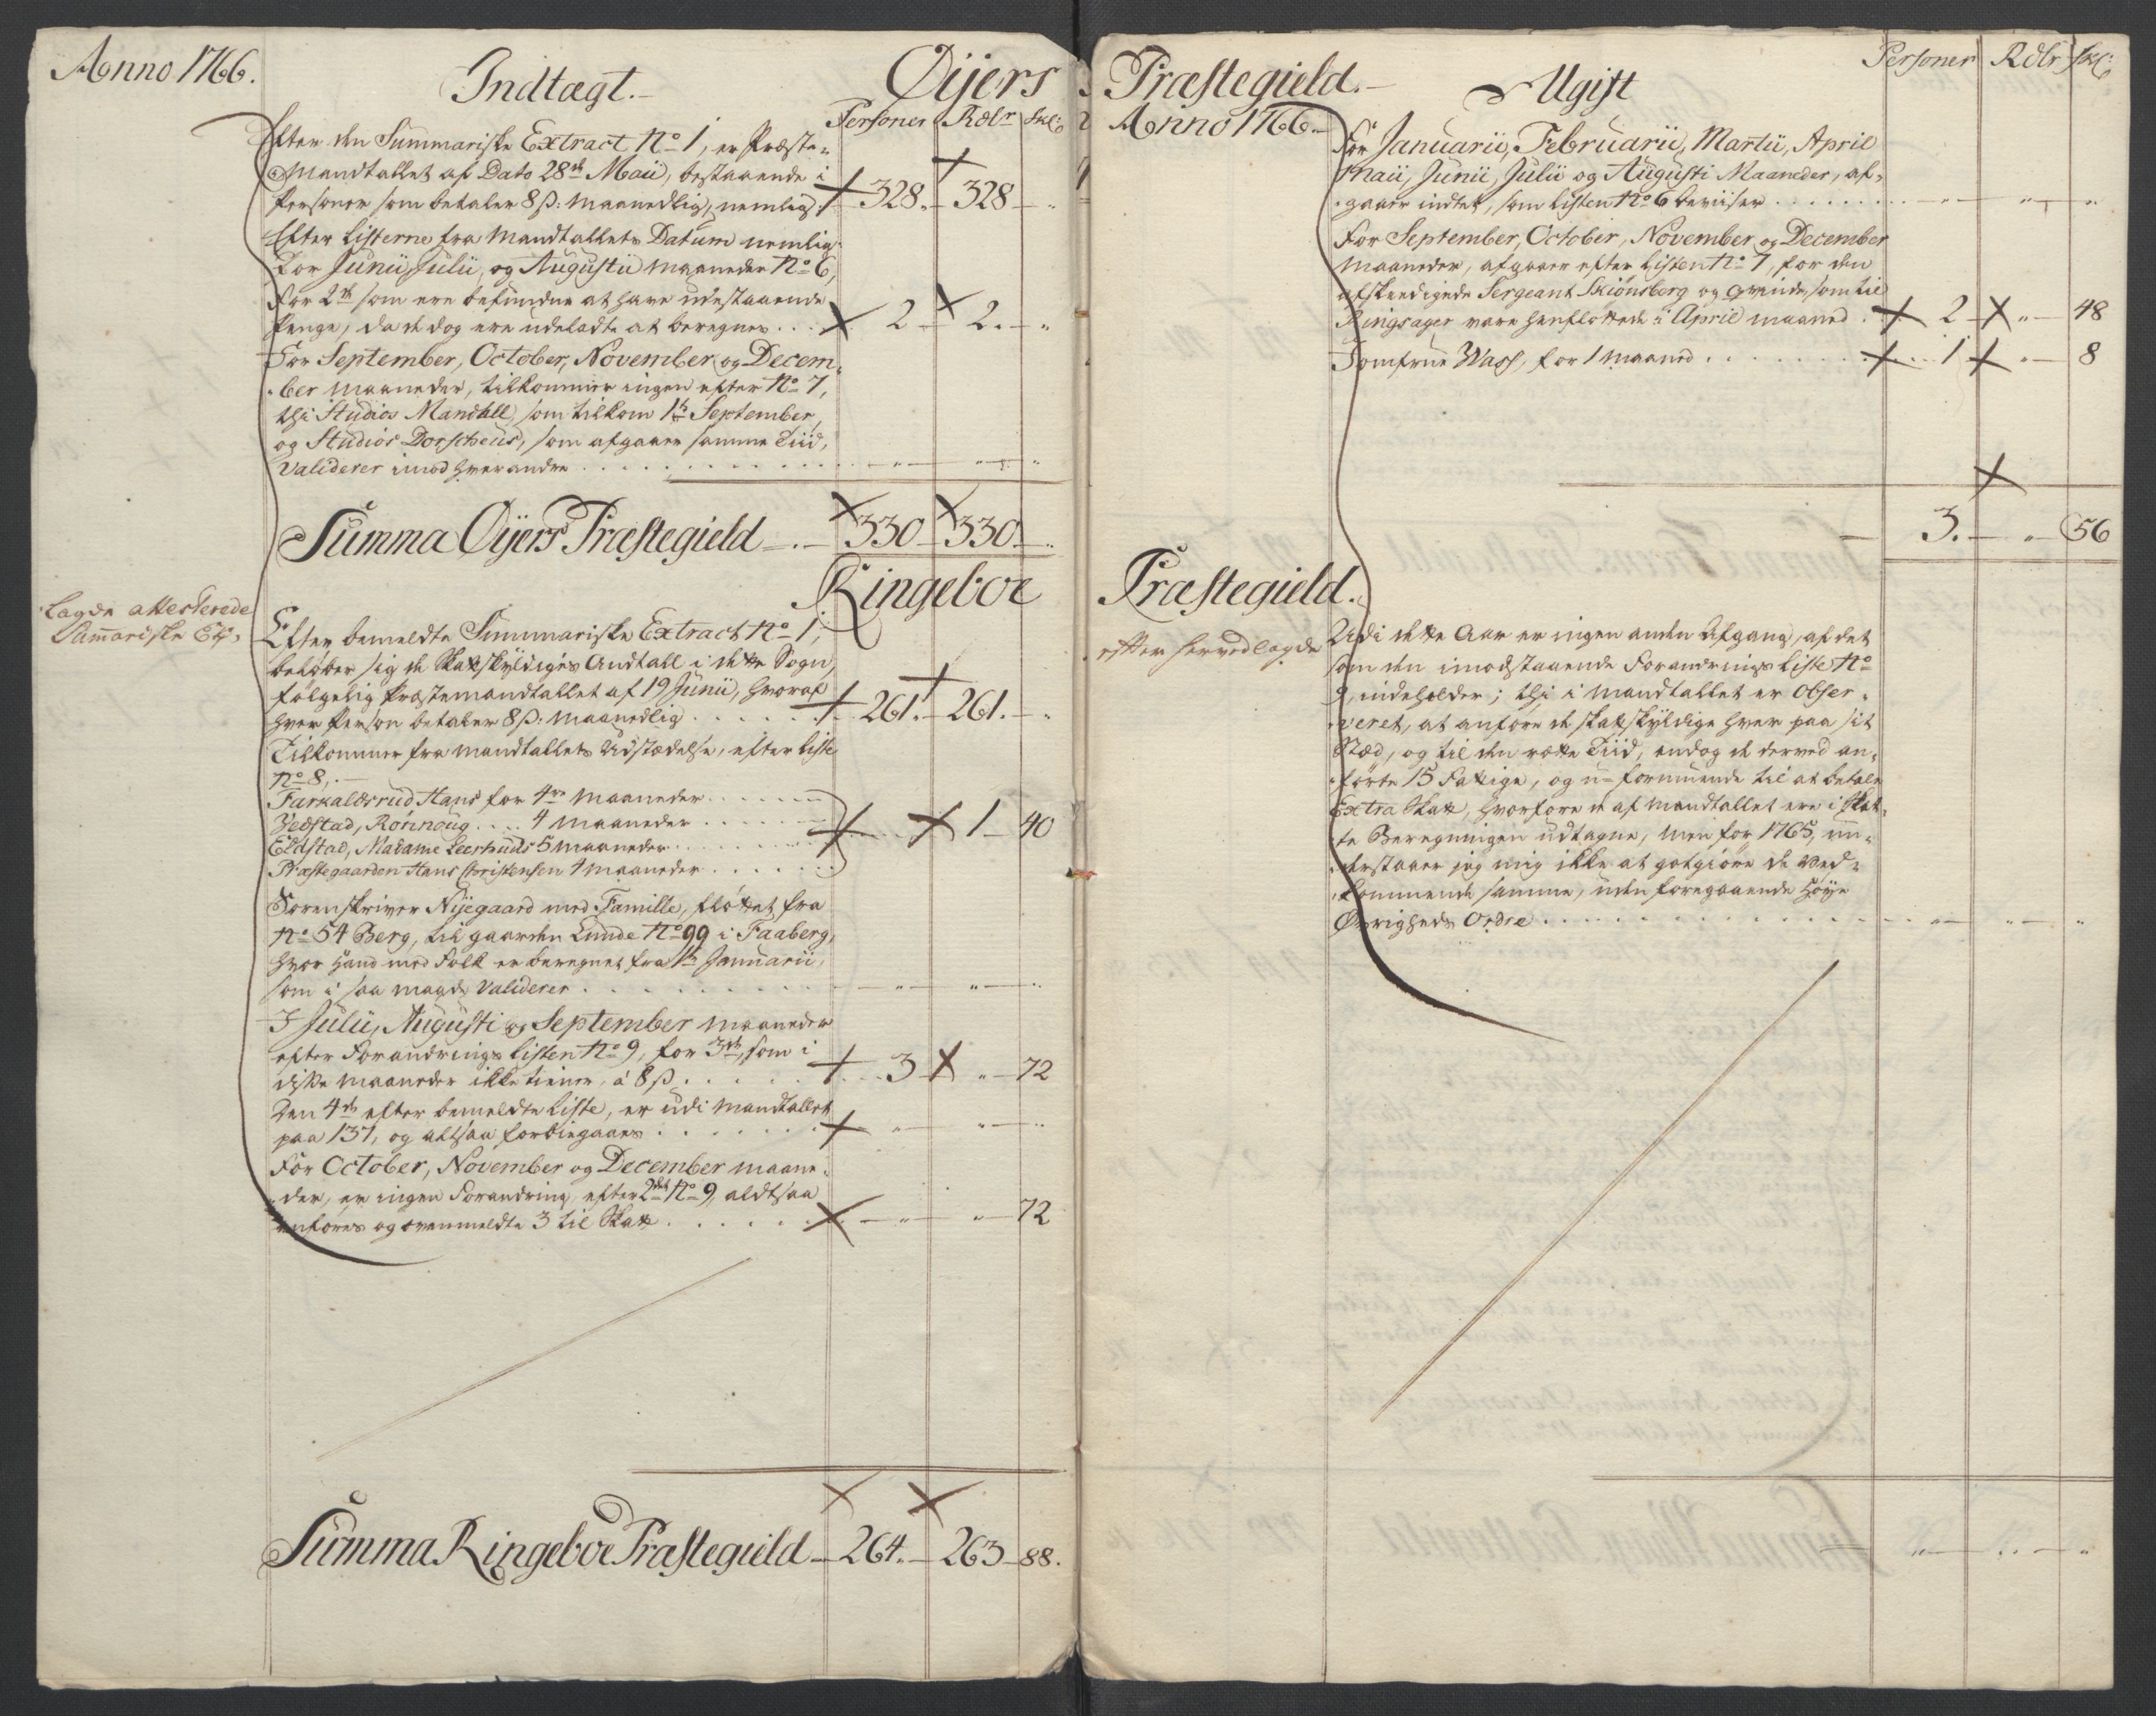 Anno 1766.
Indtægt.
Öijers
Personer Rdlr skl:
Efter den Summariske Extract No 1, er Præste-
Mandtallet af Dato 28de Maii, bestaaende i
Personer som betaler 8 ß: maanedlig, nemlig: 328. 328 "
Efter Listerne fra Mandtallets Datum nemlig
For Junii, Julii, og Augustii maaneder No 6,
For 2de som ere befundne at have udestaaende
Penge, da de dog ere udeladte at beregnes . . . 2 2. "
For September, October, November og Decem-
ber maaneder, tilkommer ingen efter No 7,
thi Studios Mandall, som tilkom 1te September,
og Studios Dorscheus, som afgaaer samme Tiid,
Validerer imod hverandre . . . " " "
Summa Öijers Præstegield 330 330. "
Ringeboe
Lagde attesterede
Summariske Ext,
Efter bemeldte Summariske Extract No 1,
beløber sig de Skatskyldiges Andtall i dette Sogn,
følgelig Præstemandtallet af 19 Junii, hvoraf
hver Person betaler 8 ß: maanedlig . . . 261. 261. "
Tilkommer fra mandtallets Udstædelse, efter Liste
No 8,
Farkaldsrud Hans for 4re maaneder . . .
Vedstad, Rönnoug . . . 4 maaneder . . .
Eldstad, Madame Leerhuds 5 maaneder . . . 1 40
Præstegaarden Hans Christensen 4 maaneder . . .
Sorenskriver Nijegaard med Famille, flöttet fra
No 54 Berg, til gaarden Lunde No 99 i Faaberg,
hvor hand med Folk er beregnet fra 1te Januarii,
som i saa maade Validerer . . . " " "
I Julii, Augusti og September maaneder
efter Forandrings Listen No 9, for 3de, som i
diske maaneder ikke tiener, á 8 ß . . . 3 " 72
Den 4de efter bemeldte Liste, er udi Mandtallet
paa 137, og altsaa forbiegaaes . . . " " "
For October, November og December maane-
der, er ingen Forandring, efter 2det No 9, aldtsaa
anføres og ovenmeldte 3 til Skatt . . . " " 72
Summa Ringeboe Præstegield 264. 263 88.
Præstegield.
Anno 1766.
Ugift
Personer Rdlr skl:
For Januarii, Februarii, Martii, April
Maii, Junii, Julii og Augusti Maaneder, af-
gaaer indtet, som Listen No 6 beviiser . . . " " "
For September, October, November og December
maaneder, afgaaer efter Listen No 7, for den
afskeedigede Sergeant Skiönsberg og Qvinde, som til
Ringsager vare henflöttede i April maaned . 2 " 48
Jomfrue Wass, for 1 maaned . . . 1 " 8
3. " 56
Præstegield.
efter hervedlagde
Udi dette Aar er ingen anden Afgang, af det
som den imodstaaende Forandrings Liste No
9, indeholder; thi i mandtallet er Obser-
veret, at anføre de skatskyldige hver paa sit
Stæd, og til den rætte Tiid, endog de derved an-
førte 15 Fattige, og u-formuende til at betale
Extra Skatt, hvorfore de af mandtallet ere i Skat-
te Beregningen udtagne, men for 1765, un-
derstaaer jeg mig ikke at gotgiöre de Ved-
kommende samme, uden foregaaende Höye
Övrigheds Ordre . . . " " "
" " "